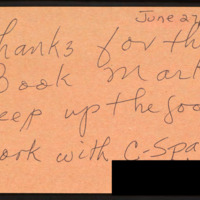 June 27
hanks for th
Book Mark
eep up the Goo
ork with C-Spa